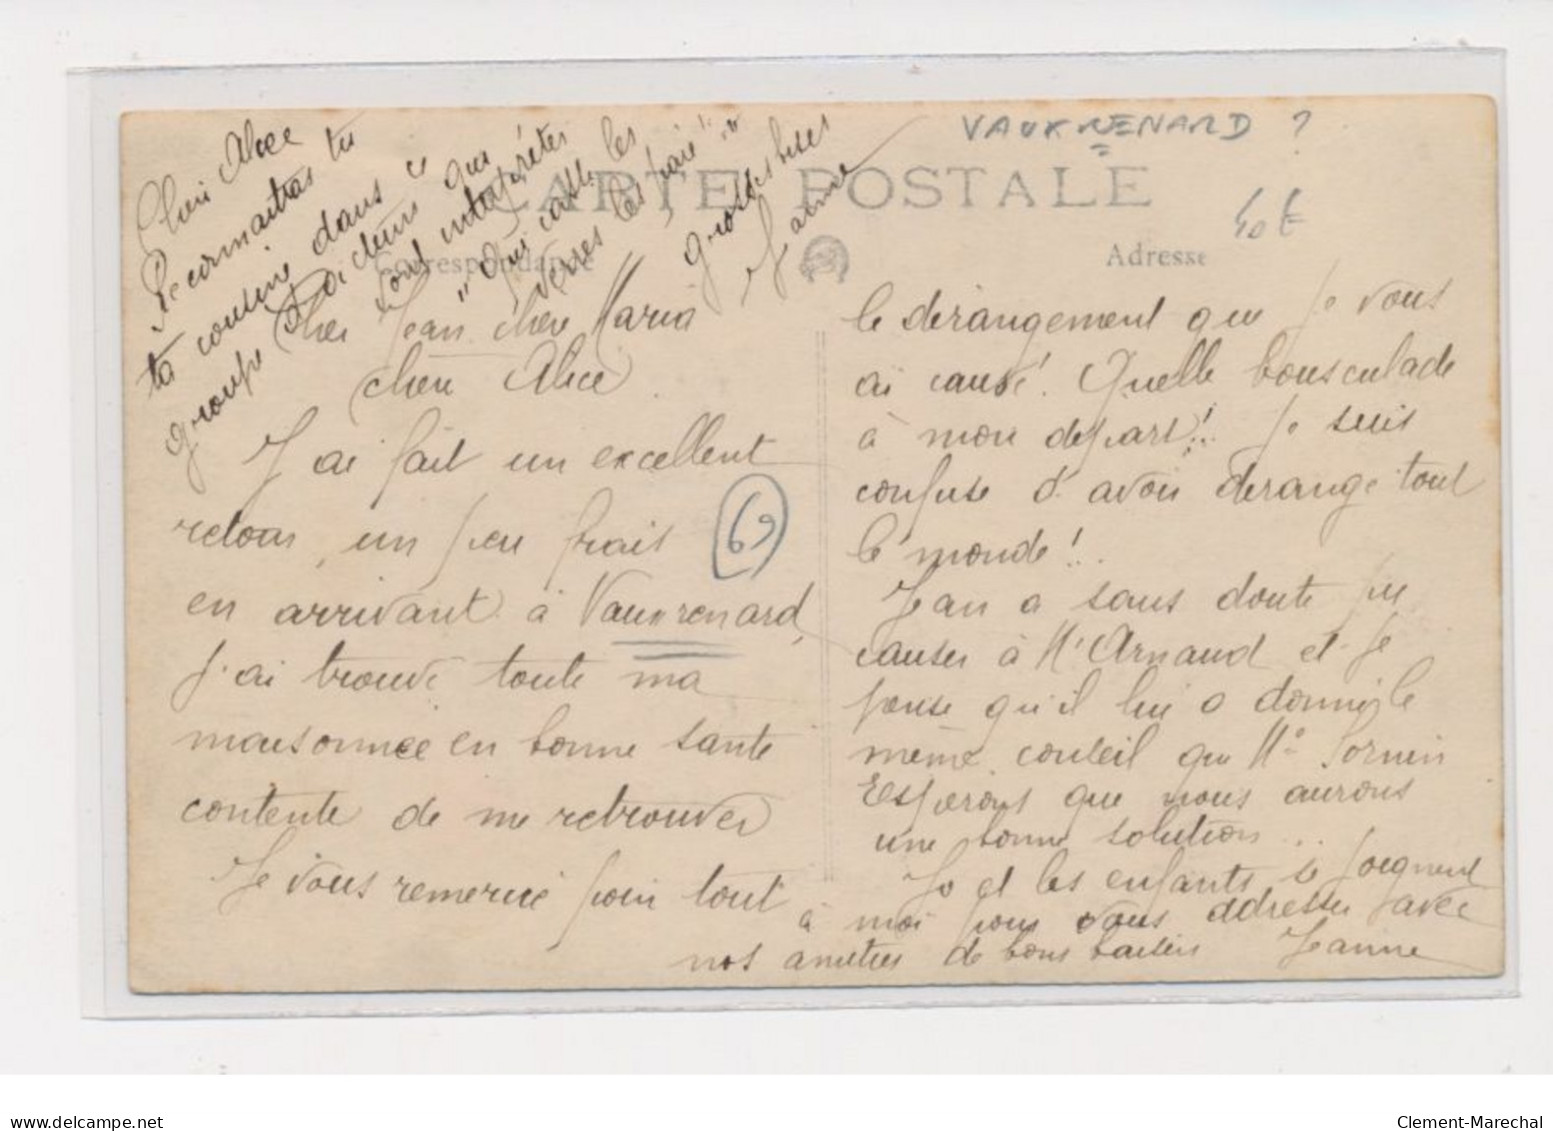 VAUXRENARD ?
40 €
CARTE POSTALE
Correspondance
Adresse
Chère Alice
Reconnaitras tu
ta cousine dans ce
groupe d'acteurs qui
ont interprétés
"Qui casse les
verres les paie"
grosses bises
Jeanne
Cher Jean chère Maria
chère Alice
J'ai fait un excellent
retour, un peu frais
69
en arrivant à Vauxrenard,
j'ai trouvé toute ma
maisonnée en bonne santé
contente de me retrouver
Je vous remercie pour tout
le dérangement que je vous
ai causé! Quelle bousculade
à mon départ!.. Je suis
confuse d'avoir dérangé tout
le monde!..
Jean a sans doute pu
causer à Mr Arnaud et je
pense qu'il lui a donné le
même conseil que Me Sornin
Espérons que nous aurons
une bonne solution...
Jo et les enfants se joignent
à moi pour vous adresser avec
nos amitiés de bons baisers Jeanne
www.delcampe.net
Clement-Marechal